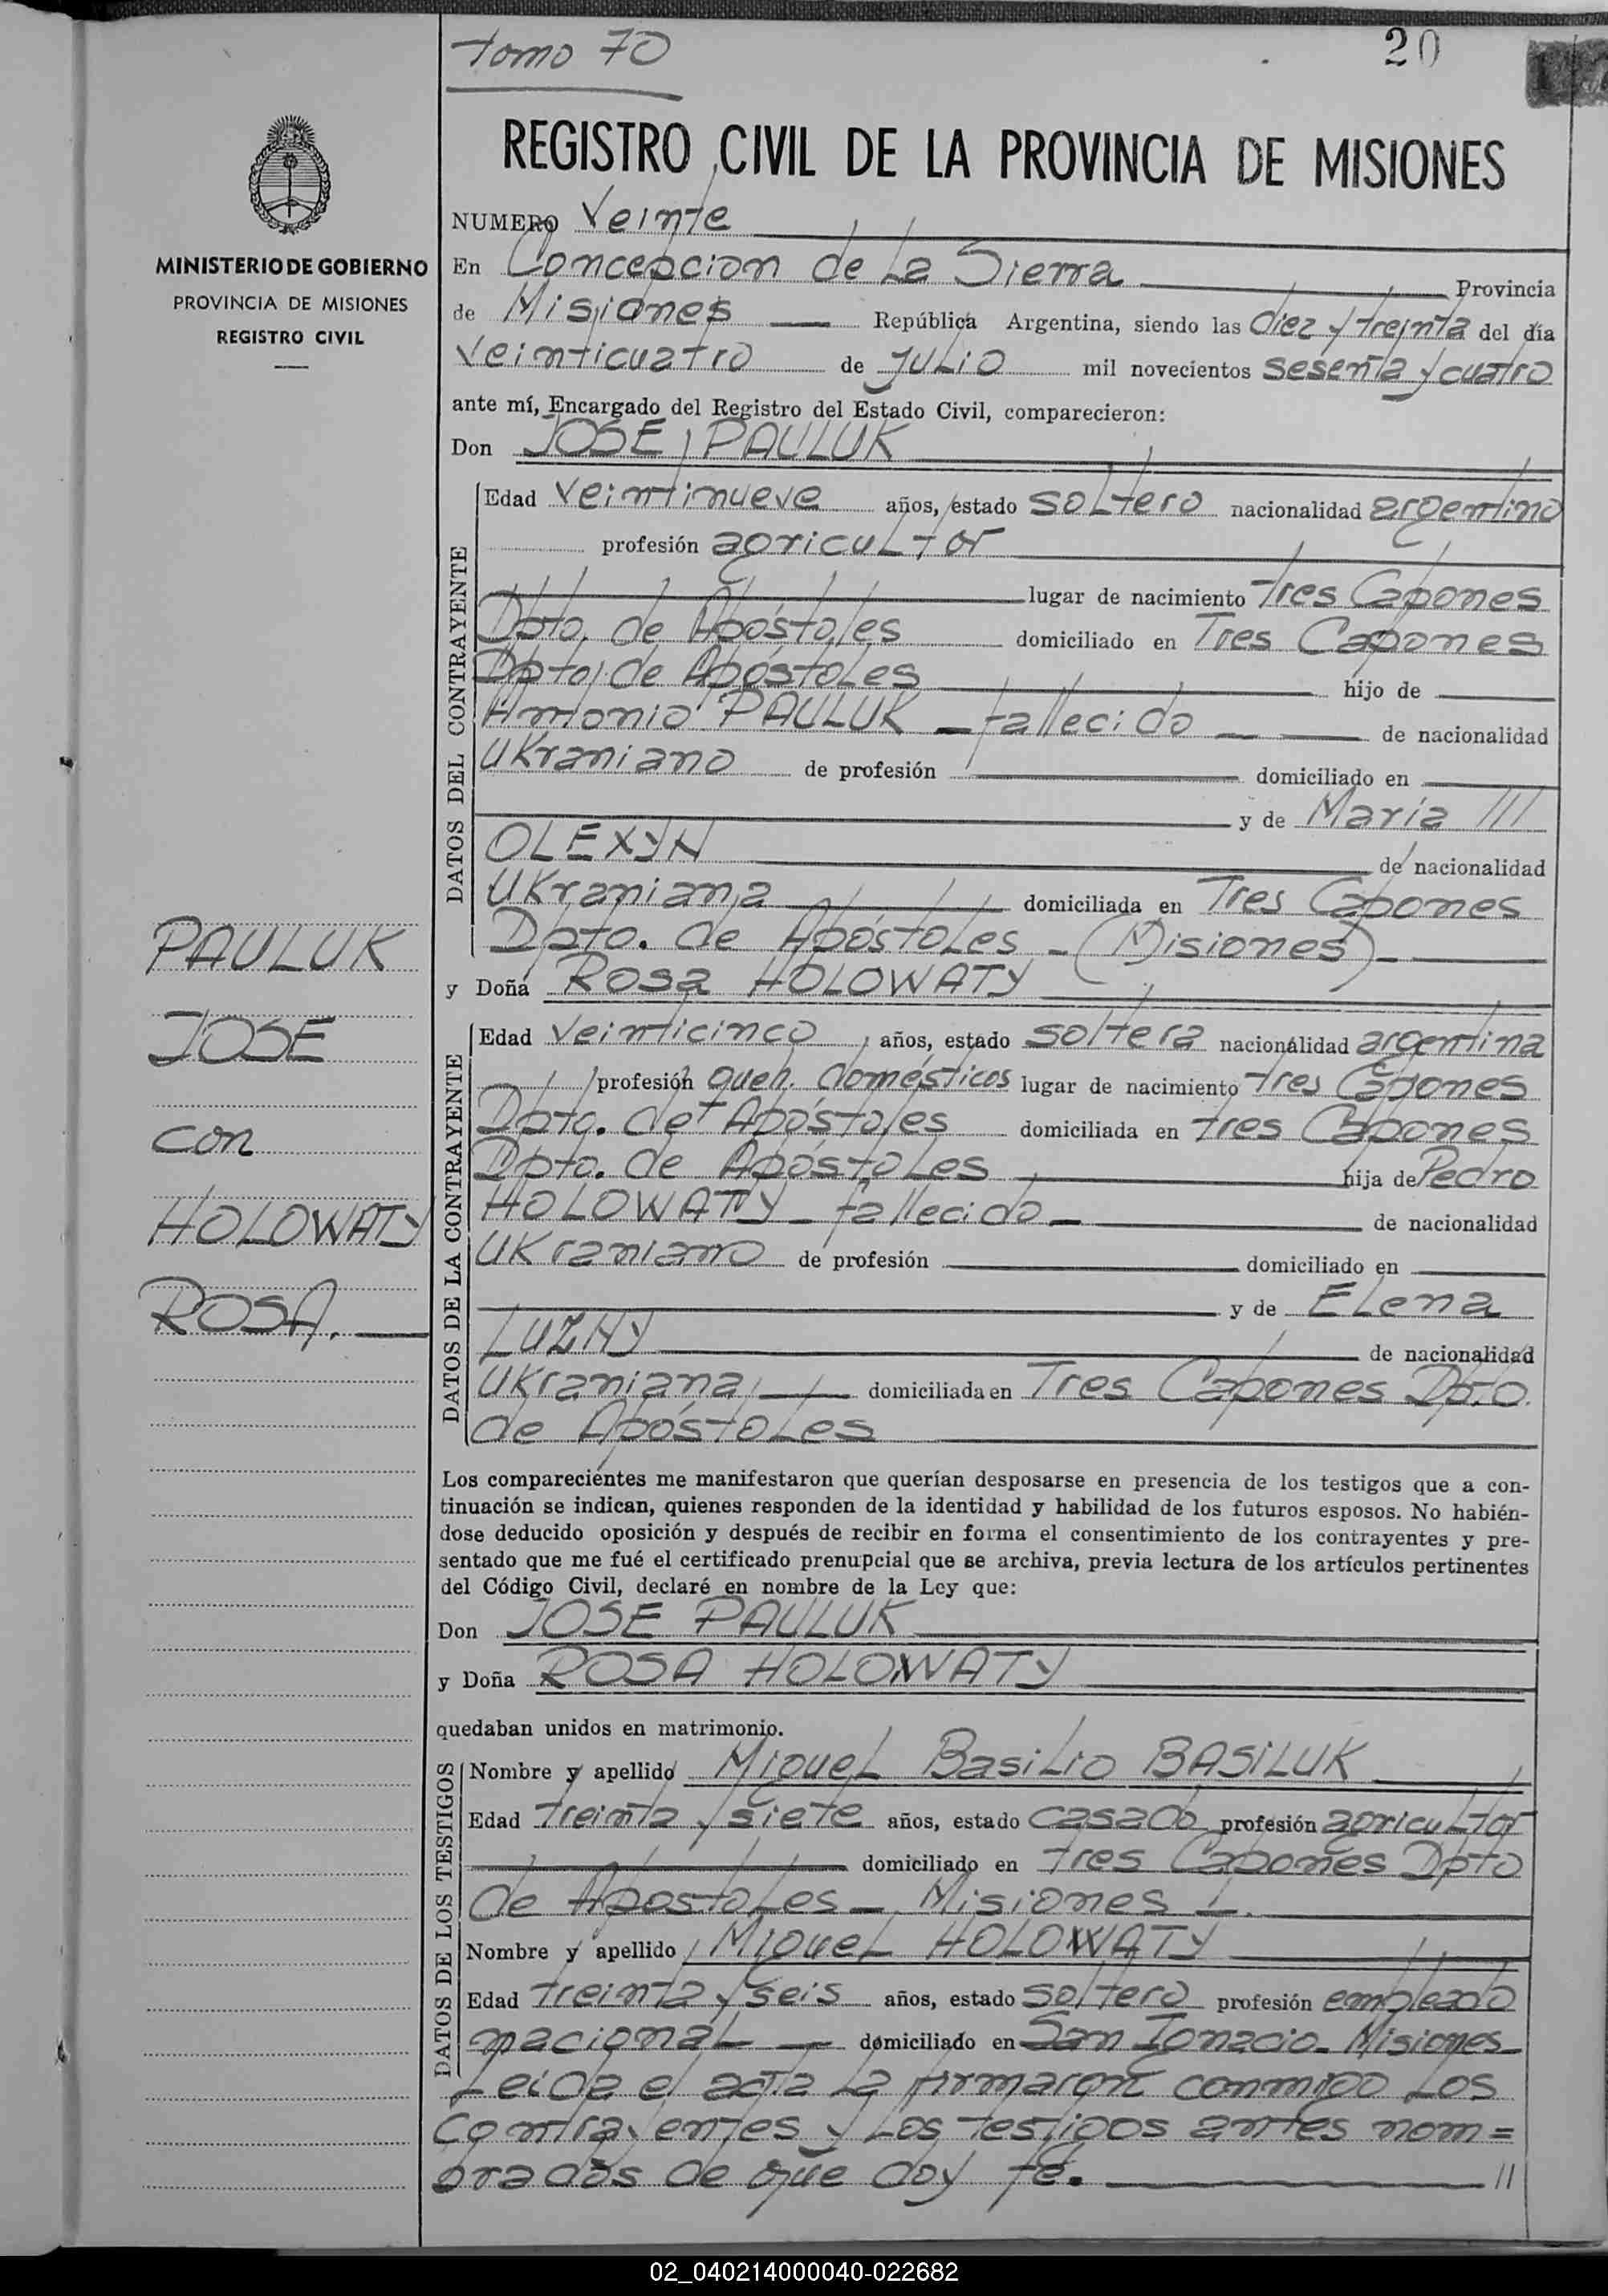 tomo 70
20
REGISTRO CIVIL DE LA PROVINCIA DE MISIONES
MINISTERIO DE GOBIERNO
PROVINCIA DE MISIONES
REGISTRO CIVIL
NUMERO Veinte
En Concepcion de La Sierra Provincia
de Misiones República Argentina, siendo las diez y treinta del día
Veinticuatro de JULIO mil novecientos sesenta y cuatro
ante mí, Encargado del Registro del Estado Civil, comparecieron:
Don JOSE PAULUK
DATOS DEL CONTRAYENTE
Edad Veintinueve años, estado soltero nacionalidad argentino
profesión agricultor
lugar de nacimiento Tres Capones
Dpto. de Apóstoles domiciliado en Tres Capones
Dpto. de Apóstoles hijo de
Antonio PAULUK - fallecido de nacionalidad
Ukraniano de profesión domiciliado en
y de María ///
OLEXYN de nacionalidad
Ukraniana domiciliada en Tres Capones
Dpto. de Apóstoles - (Misiones) -
y Doña Rosa HOLOWATY
DATOS DE LA CONTRAYENTE
Edad Veinticinco años, estado soltera nacionalidad argentina
profesión queh. domésticos lugar de nacimiento Tres Capones
Dpto. de Apóstoles domiciliada en tres Capones
Dpto. de Apóstoles hija de Pedro
HOLOWATY - fallecido - de nacionalidad
Ukraniano de profesión domiciliado en
y de Elena
LUZNY de nacionalidad
Ukraniana domiciliada en Tres Capones Dpto.
de Apóstoles
PAULUK
JOSE
con
HOLOWATY
ROSA.
Los comparecientes me manifestaron que querían desposarse en presencia de los testigos que a con-
tinuación se indican, quienes responden de la identidad y habilidad de los futuros esposos. No habién-
dose deducido oposición y después de recibir en forma el consentimiento de los contrayentes y pre-
sentado que me fué el certificado prenupcial que se archiva, previa lectura de los artículos pertinentes
del Código Civil, declaré en nombre de la Ley que:
Don JOSE PAULUK
y Doña ROSA HOLOWATY
quedaban unidos en matrimonio.
DATOS DE LOS TESTIGOS
Nombre y apellido Miguel Basilio BASILUK
Edad treinta y siete años, estado casado profesión agricultor
domiciliado en tres Capones Dpto
de Apostoles - Misiones -.
Nombre y apellido Miguel HOLOWATY
Edad treinta y seis años, estado soltero profesión empleado
nacional domiciliado en San Ignacio - Misiones
Leida el acta la firmaron conmigo los
contrayentes y los testigos antes nom=
brados de que doy fé. //
02_040214000040-022682